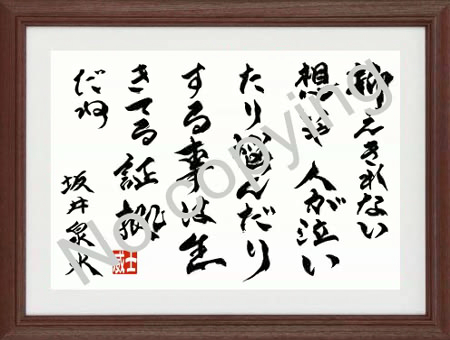 抑えきれない
想や人が泣い
たり悩んだり
する事は生
きてる証拠
だね
坂井泉水
威士
No copying